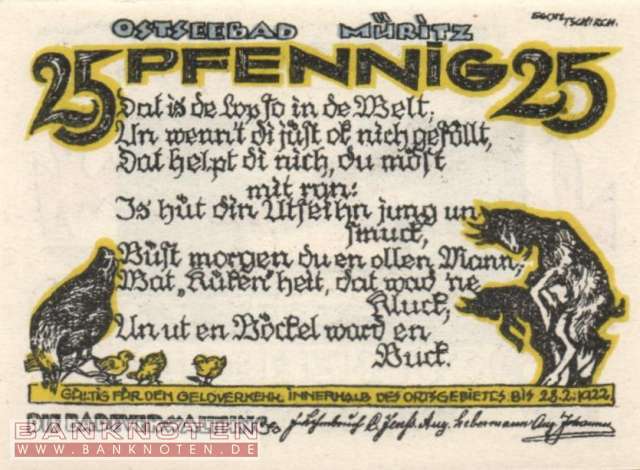 OSTSEEBAD MÜRITZ
25 PFENNIG 25
Dat is de Lop so in de Welt,
Un wenn't di jüst ok nich geföllt,
Dat helpt di nich, du möst
mit ran:
Is hüt din Utseihn jung un
smuck,
Büst morgen du en ollen Mann,
Wat „Küken" heit, dat ward 'ne
Kluck,
Un ut en Böckel ward en
Buck.
GÜLTIG FÜR DEN GELDVERKEHR INNERHALB DES ORTSGEBIETES BIS 28.2.1922
DIE BADEVERWALTUNG:
BANKNOTEN
WWW.BANKNOTEN.DE